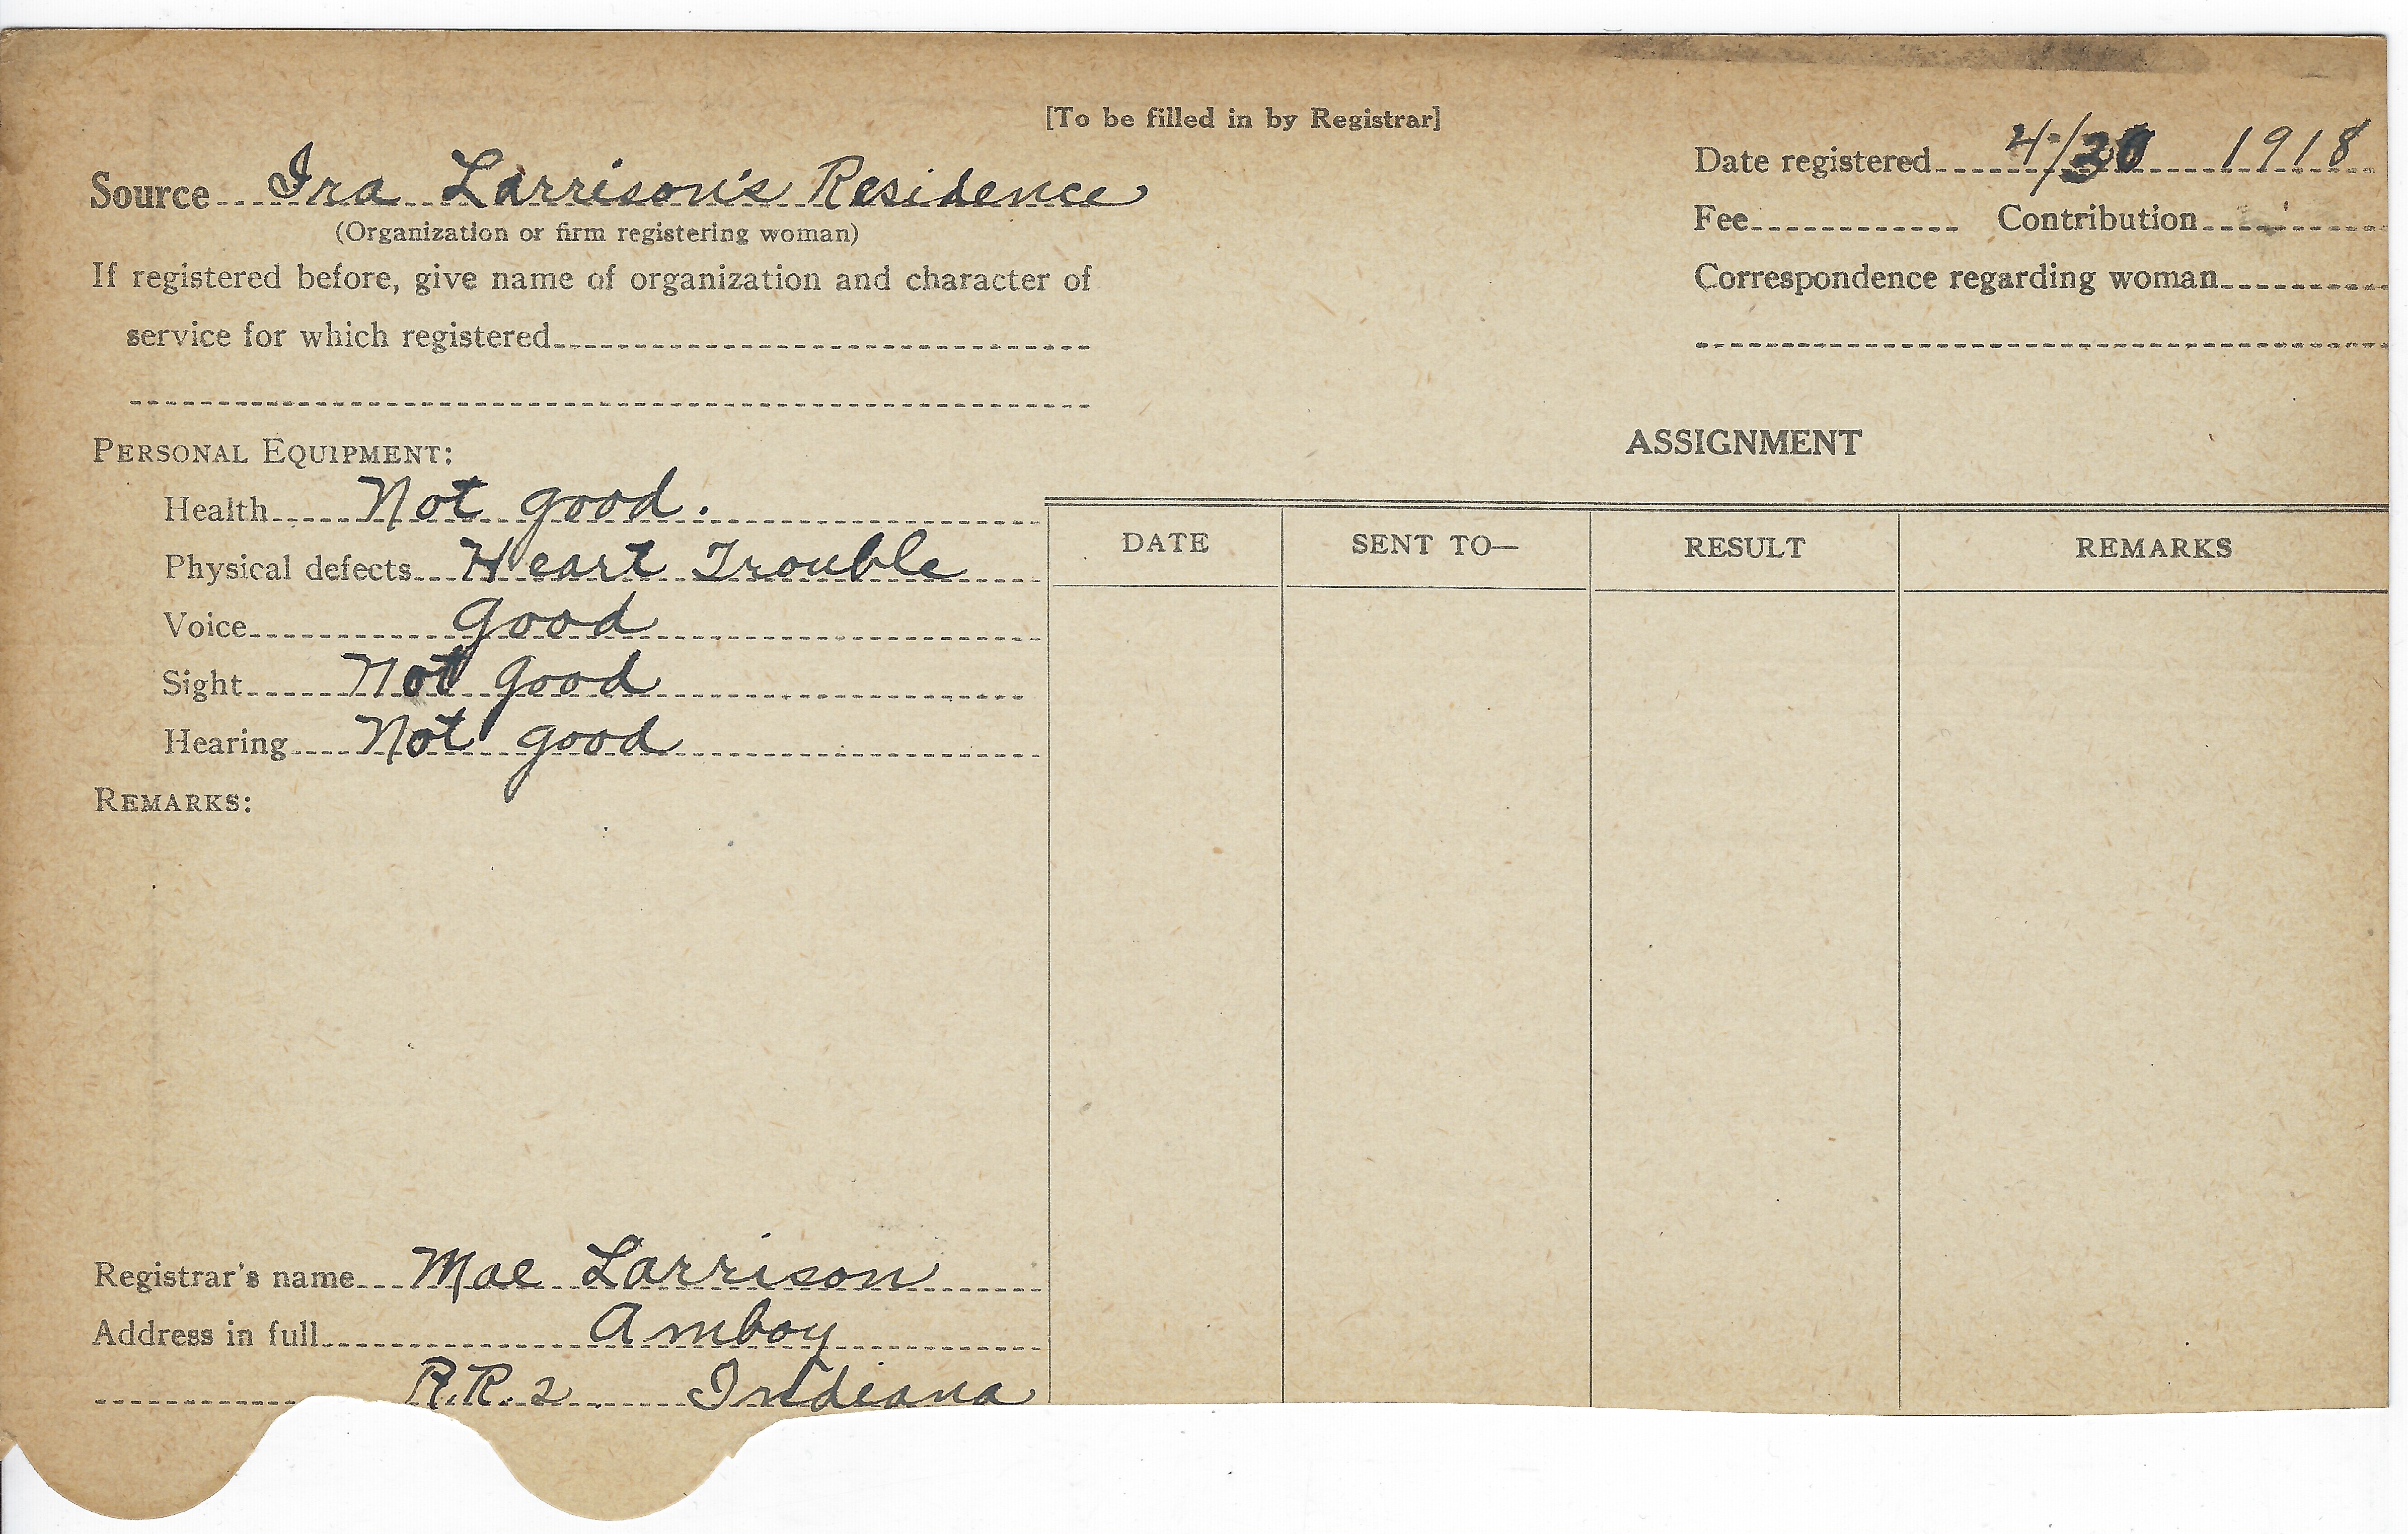 [To be filled in by Registrar]
Source Ira Larrison's Residence
(Organization or firm registering woman)
If registered before, give name of organization and character of
service for which registered
Date registered 4/30 1918
Fee Contribution
Correspondence regarding woman
PERSONAL EQUIPMENT:
Health Not good.
Physical defects Heart Trouble
Voice good
Sight Not good
Hearing Not good
REMARKS:
Registrar's name Mae Larrison
Address in full Amboy
R.R.2 Indiana
ASSIGNMENT
DATE SENT TO— RESULT REMARKS